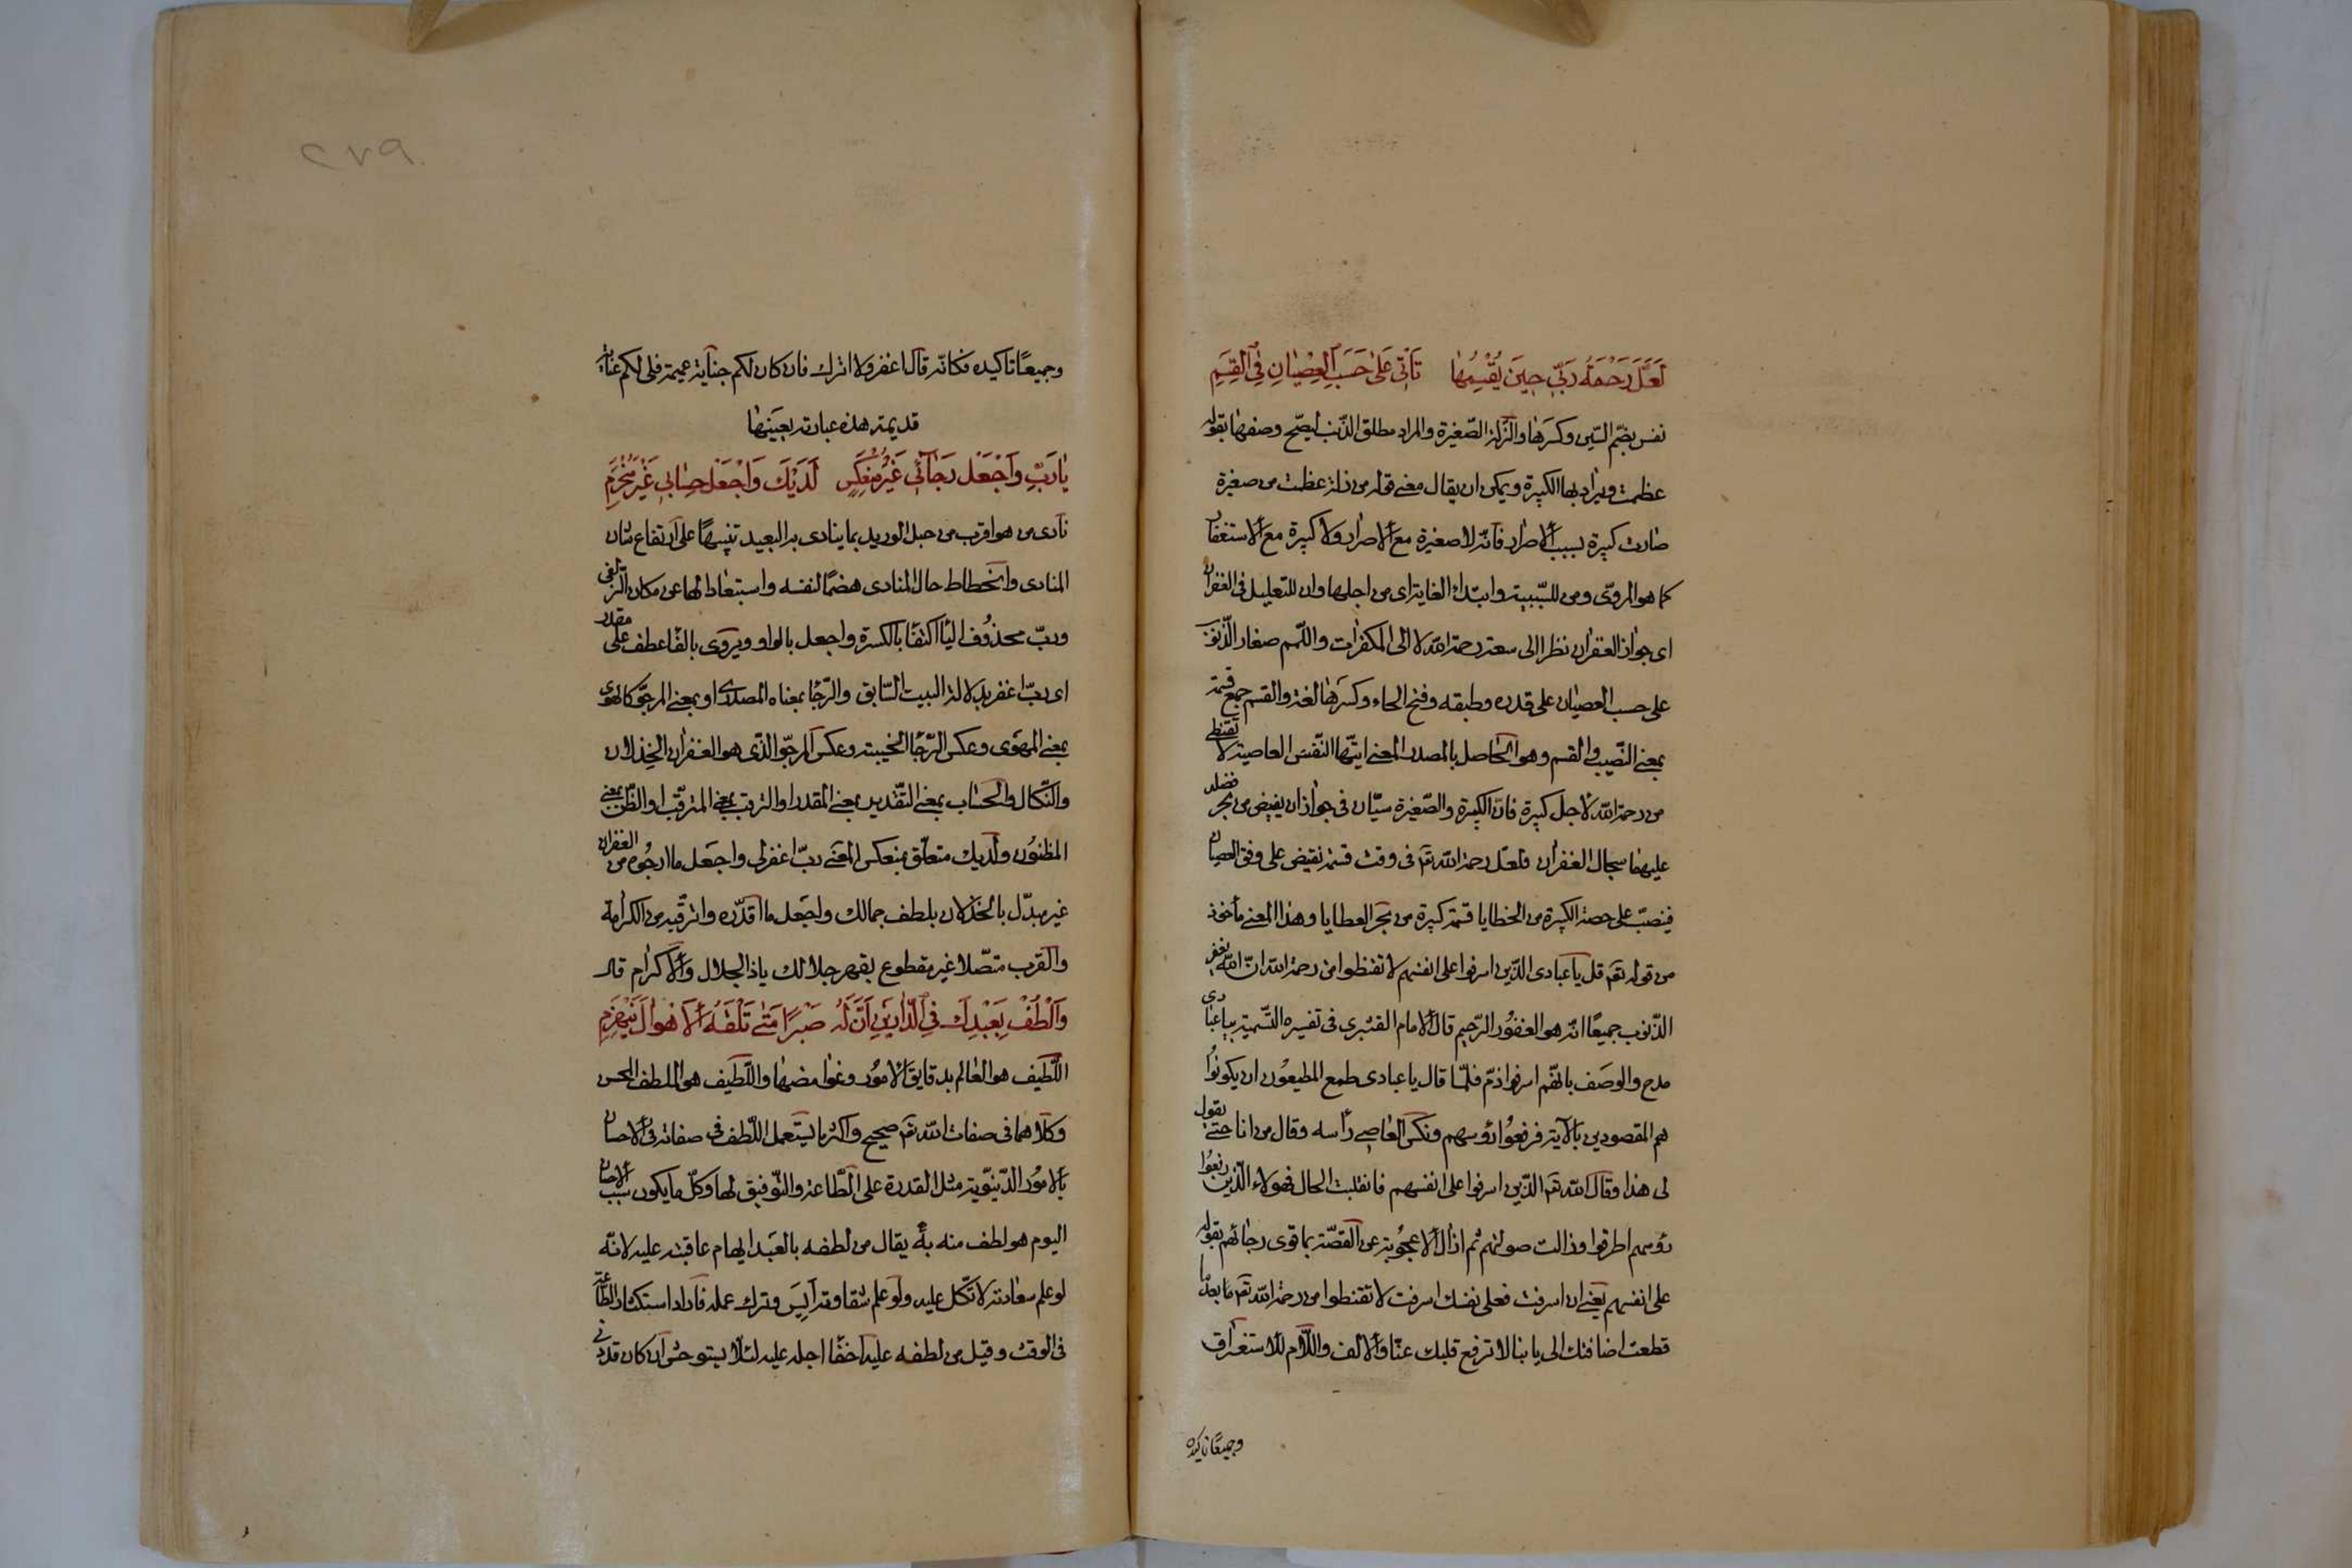 لَعَلَّ رَحْمَةَ رَبِّي حِينَ يُقْسِمُهَا تَأْتِي عَلَى حَسَبِ الْعِصْيَانِ فِي الْقِسَمِ
نفس بضم السين وكسرها والزلة الصغيرة والمراد مطلق الذنب ليصح وصفها بقوله
عظمت ويراد بها الكبيرة ويمكن ان يقال معنى قوله من زلة عظمت من صغيرة
صارت كبيرة بسبب الاصرار فانه لا صغيرة مع الاصرار ولا كبيرة مع الاستغفار
كما هو المروى ومن للسببية وابتداء الغاية اى من اجلها وان للتعليل فى الغفران
اى جواز الغفران نظرا الى سعة رحمة الله لا الى المكفرات واللمم صغار الذنوب
على حسب العصيان على قدره وطبقه وفتح الحاء وكسرها لغة والقسم جمع قسمة
بمعنى النصيب والقسم وهو الحاصل بالمصدر المعنى ايتها النفس العاصية لا تقنطى
من رحمة الله لاجل كبيرة فان الكبيرة والصغيرة سيان فى جواز ان يفيض من بحر فضله
عليهما سجال الغفران فلعل رحمة الله تعـ فى وقت قسمة تفيض على وفق العصيان
فينصب على حصة الكبيرة من الخطايا قسمة كبيرة من بحر العطايا وهذا المعنى مأخوذ
من قوله تعـ قل يا عبادى الذين اسرفوا على انفسهم لا تقنطوا من رحمة الله ان الله يغفر
الذنوب جميعًا انه هو الغفور الرحيم قال الامام القشيرى فى تفسيره التسمية بيا عبادى
مدح والوصف بانهم اسرفوا ذم فلما قال يا عبادى طمع المطيعون ان يكونوا
هم المقصودين بالآية فرفعوا رؤسهم ونكس العاصى رأسه وقال من انا حتى يقول
لى هذا وقال الله تعـ الذين اسرفوا على انفسهم فانقلبت الحال فهؤلاء الذين رفعوا
رؤسهم اطرقوا وزالت صولتهم ثم ازال الاعجوبة عن القصة بما قوى رجائهم بقوله
على انفسهم يعنى ان اسرفت فعلى نفسك اسرفت لا تقنطوا من رحمة الله تعـ ما بعد ما
قطعت اضافتك الى بابنا لا ترفع قلبك عنا والالف واللام للاستغراق
وجميعًا تاكيده
٢٧٩
وجميعًا تاكيده فكانه قال اغفر ولا اترك فان كان لكم جناية عميمة فلى لكم عناية
قديمة هذه عبارته بعينها
يَا رَبِّ وَاجْعَلْ رَجَائِي غَيْرَ مُنْعَكِسٍ لَدَيْكَ وَاجْعَلْ حِسَابِي غَيْرَ مُنْخَرِمِ
نادى من هو اقرب من حبل الوريد بما ينادى به البعيد تنبيهًا على ارتفاع شان
المنادى وانحطاط حال المنادى هضمًا لنفسه واستبعادا لها عن مكان الزلفى
ورب محذوف اليا اكتفاء بالكسرة واجعل بالواو ويروى بالفا عطف على مقدر
اى رب اغفر بدلالة البيت السابق والرجا بمعناه المصدرى او بمعنى المرجو كالهوى
بمعنى المهوى وعكس الرجا الخيبة وعكس المرجو الذى هو الغفران الخذلان
والنكال والحساب بمعنى التقدير بمعنى المقدر او الترقب بمعنى المترقب او الظن بمعنى
المظنون ولديك متعلق بمنعكس المعنى رب اغفر لى واجعل ما ارجوه من الغفران
غير مبدل بالخذلان بلطف جمالك واجعل ما اقدره واترقبه من الكرامة
والقرب متصلا غير مقطوع بقهر جلالك ياذا الجلال والاكرام قال
وَالْطُفْ بِعَبْدِكَ فِي الدَّارَيْنِ اَنَّ لَهُ صَبْرًا مَتَى تَلْقَهُ الْاَهْوَالُ يَنْهَزِمِ
اللطيف هو العالم بدقايق الامور وغوامضها واللطيف هو الملطف المحسن
وكلاهما فى صفات الله تعـ صحيح واكثر ما يستعمل اللطف فى صفاته فى الاحسان
بالامور الدينوية مثل القدرة على الطاعة والتوفيق لها وكل ما يكون بسبب الاحسان
اليوم هو لطف منه به يقال من لطفه بالعبد ايهام عاقبته عليه لانه
لو علم سعادته لاتكل عليه ولو علم شقاوته آيس وترك عمله فاراد استكثار الطاعة
فى الوقت وقيل من لطفه عليه اخفا اجله عليه لئلا يستوحش ان كان قد دنى